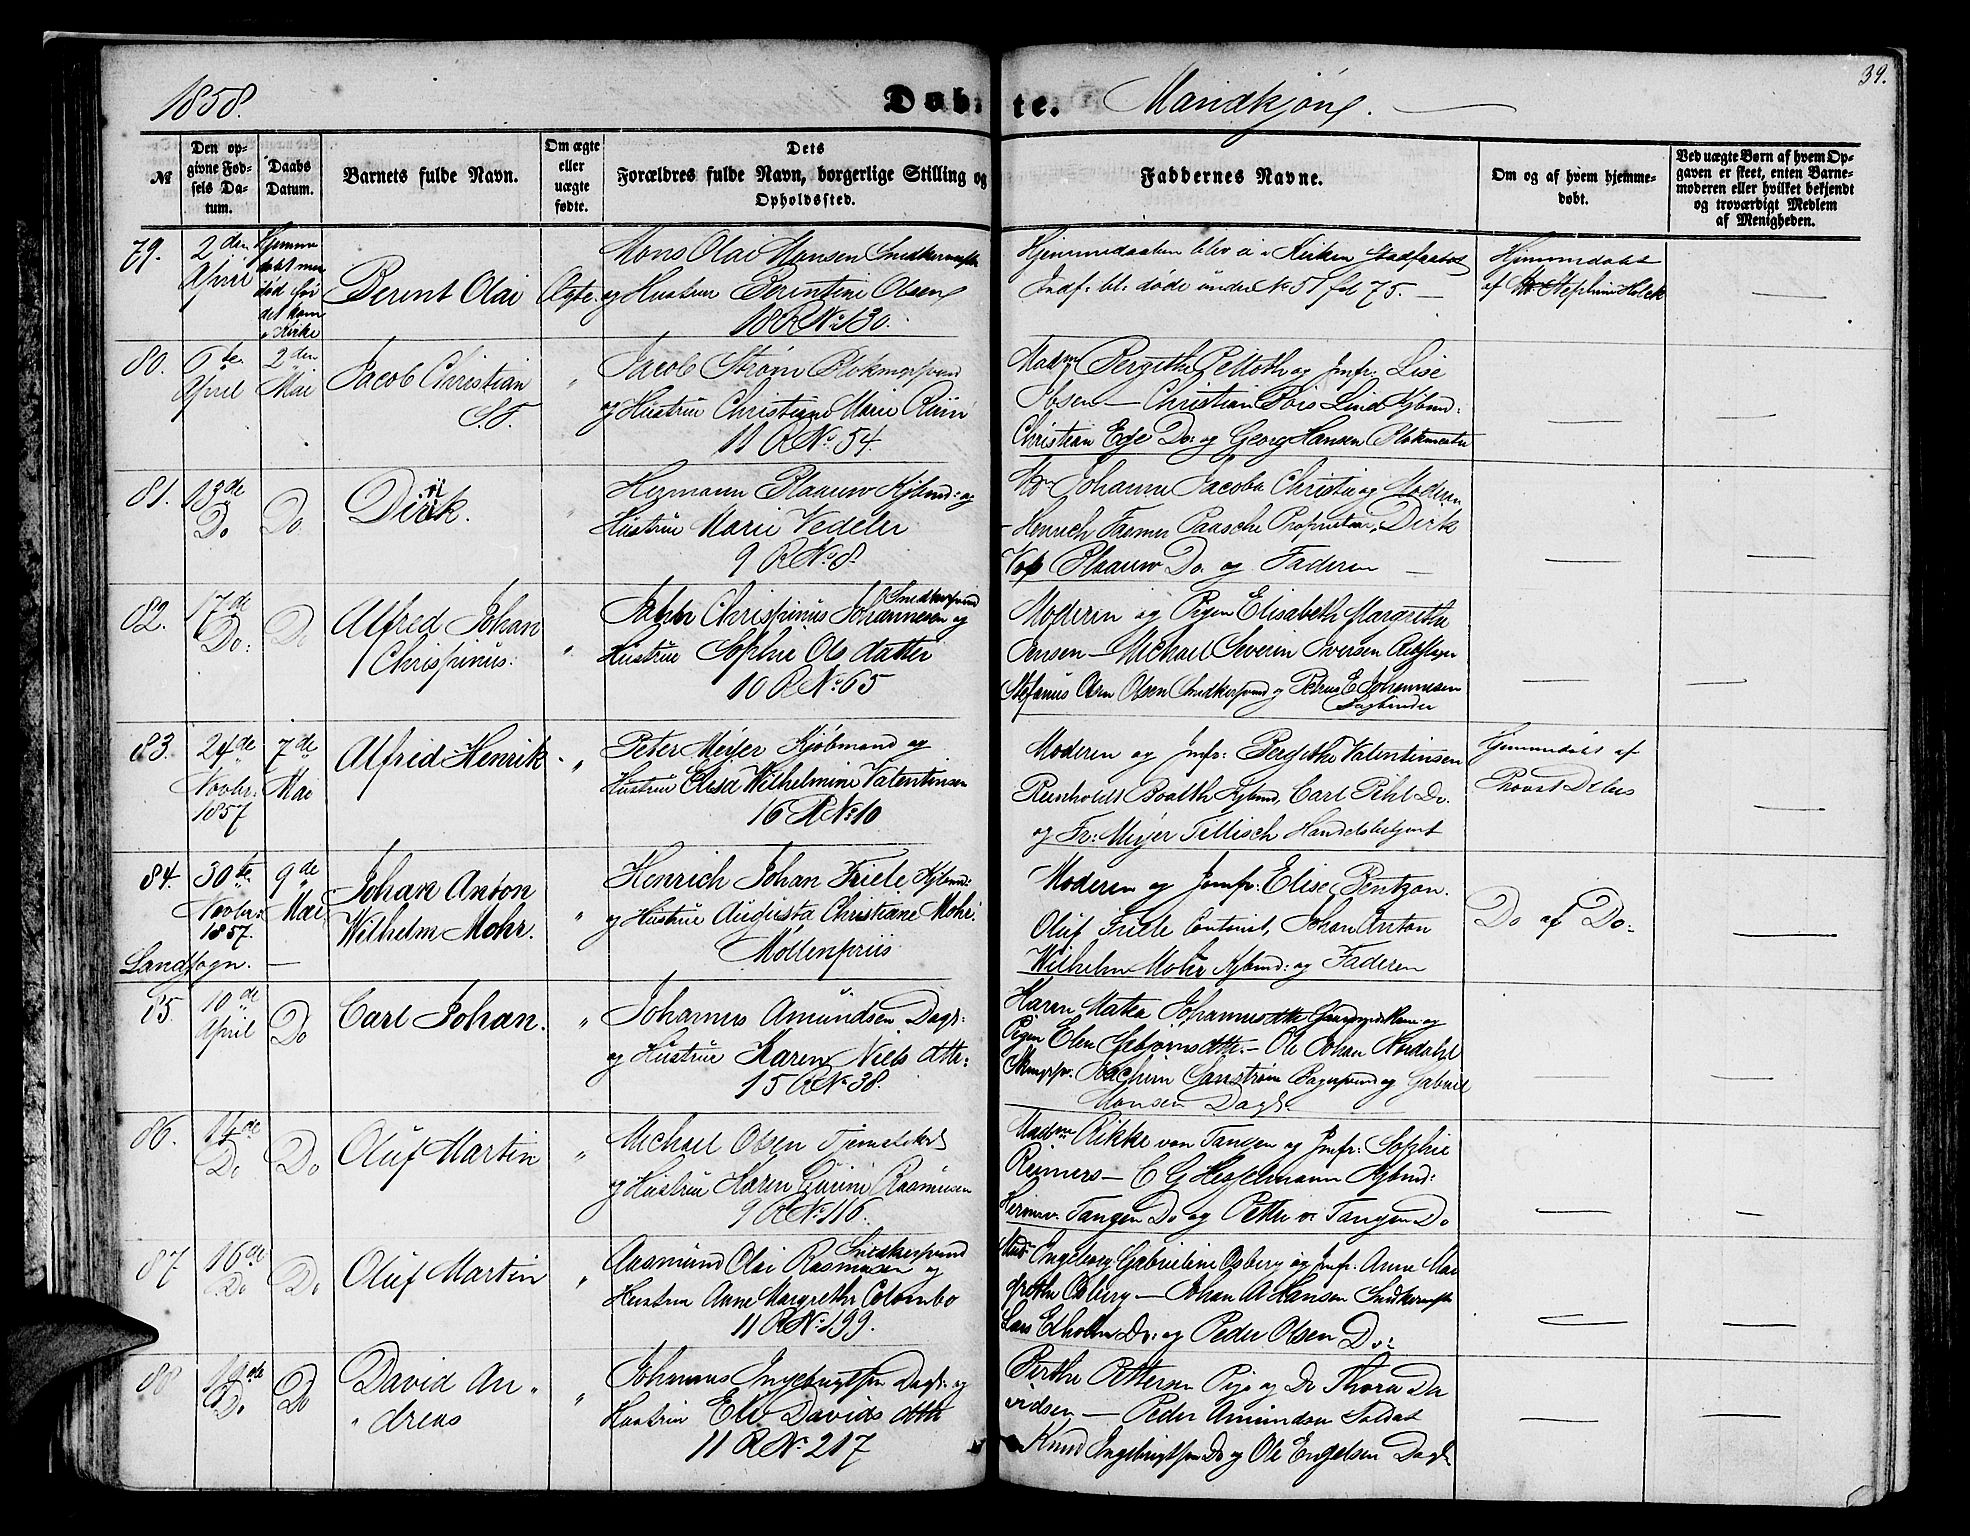 39.
1858.
Døbte.
Mandkjøn.
№
Den opgivne Fødsels Datum.
Daabs Datum.
Barnets fulde Navn.
Om ægte eller uægte fødte.
Dets Forældres fulde Navn, borgerlige Stilling og Opholdssted.
Faddernes Navne.
Om og af hvem hjemmedøbt.
Ved uægte Børn af hvem Opgaven er skeet, enten Barnemoderen eller hvilket bekjendt og troværdigt Medlem af Menigheden.
79.
2den
April
Hjemme
det kom
i Kirke
Berent Olai
Ægte.
Mons Olai Monsen
og Hustrue Berentine Olsen
18 R No. 130.
Hjemmedaaben blev ei i Kirken Stadfæstet
Indf: bl: døde under No 57 fol 75.
Hjemmedøbt
af Stephine Holck
80.
6te
April
2den
Mai
Jacob Christian
S.T.
"
Jacob Strøm Blokmgsvend
og Hustrue Christiane Marie Riun
11 R No. 54.
Madm Bergithe og Jmfr: Lise
Ibsen — Christian Lind Kjbmd:
Christian Ege Do: og Georg Hansen Blokmester
81.
13de
Do
Do
Dirk.
"
Hermann Blaauw Kjbmd: og
Hustrue Marie Vedeler
9 R No. 8.
Johanne Jacoba Christie og Moderen
— Henrich Fasmer Paasche Proprietair, Dirk
Blaauw Do. og Faderen —
82.
17de
Do:
Do
Alfred Johan
Chrispinus:
"
Snedkersvend
John Chrispinus Johannesen og
Hustrue Sophie Ols datter
10 R No. 65
Moderen og Pigen Elisabeth Margrethe
Jensen — Michael Severin Iversen
Stefanus Olsen Snedkersvend og Petrus E Johannesen
83.
24de
Novbr:
1857
7de
Mai
Alfred Henrik
"
Peter Meyer Kjøbmand og
Hustrue Elisa Wilhelmine Valentinsen
16 R No. 10
Moderen og Jmfr: Bergithe Valentinsen
Reinholdt Kjbmd, Carl Pihl Do.
og Fr: Meyer Tellisch Handelsbetjent
Hjemmedøbt af
Provst
84.
30te
Novbr:
1857.
9de
Mai
Johan Anton
Wilhelm Mohr.
"
Henrich Johan Friele Kjbmd:
og Hustrue Augusta Christiane Mohr.
Møllenpriis
Moderen og Jomfr: Elise Pentzon.
Oluf Friele Contorist, Johan Anton
Wilhelm Mohr Kjbmd: og Faderen
Do af Do:
Landsogn. —
85.
10de
April
Do
Carl Johan.
"
Johannes Amundsen Dags:
og Hustrue Karen Niels dtr:
15 R No. 38.
Karen Johannesdtr Kone og
Pigen Elen — Ole Johan Nordahl
Joachim og Gabriel
Monsen Dags:
86.
14de
Do
Do
Oluf Martin
"
Michael Olsen
og Hustrue Karen Gurine Rasmussen
9 R No. 116.
Madm Rikke von Tangen og Jmfr: Sophie
Reimers — C G Hesselmann Kjbmd:
v. Tangen Do og v: Tangen Do
87
16de
Do
Do
Oluf Martin
"
Snedkersvend
Aasmund Olai Rasmussen og
Hustrue Anne Margrethe Colombo
11 R No. 199.
Engeborg Gabrieline Osberg og Jmfr. Anne Mar
grethe Osberg — Johan A Hansen Snedkermester
Lars Do: og Peder Olsen Do:
88
19de
Do
Do
David An„
„dreas
"
Johannes Ingebrigtsen Dags: og
Hustrue Eli Davids dtr
11 R No. 217
Berthe Pettersen Pige og Do Thora Da
vidsen — Peder Amundsen Soldat
Knud Ingebrigtsen Do og Ole Engelsen Dags: